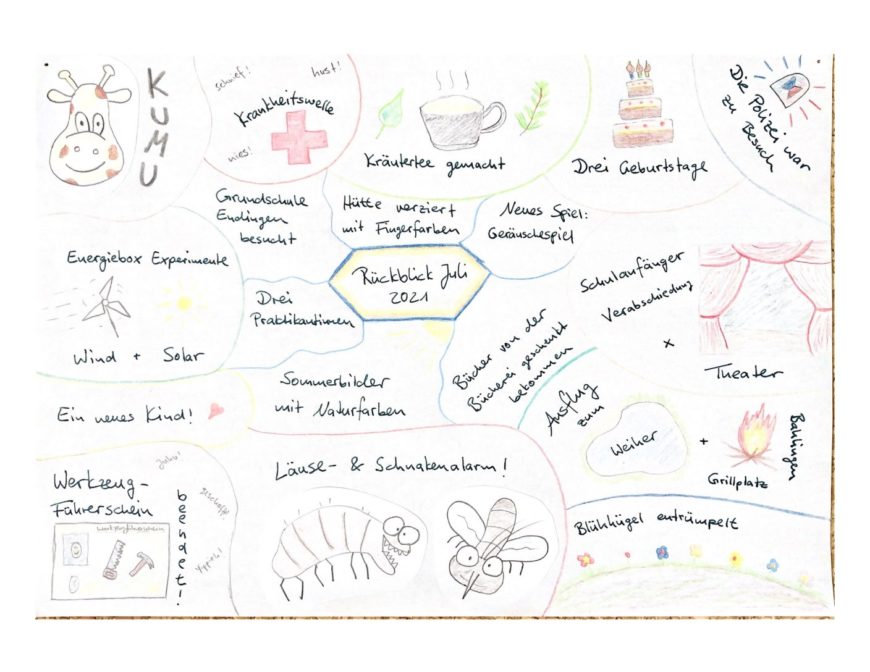 KUMU
schnief!
hust!
Krankheitswelle
hies!
Kräutertee gemacht
Drei Geburtstage
Die Polizei war
zu Besuch
Grundschule
Endingen
besucht
Hütte verziert
mit Fingerfarben
Neues Spiel:
Geräuschespiel
Energiebox Experimente
Wind + Solar
Drei
Praktikantinnen
Rückblick Juli
2021
Schulaufänger
Verabschiedung
x
Theater
Bücher von der
Bücherei geschenkt
bekommen
Sommerbilder
mit Naturfarben
Ein neues Kind!
Ausflug
zum
Weiher
+
Grillplatz
Bahlingen
Werkzeug-
Führerschein
beendet!
Juhu!
geschafft!
Yippieh!
Werkzeugführerschein
Läuse- & Schnakenalarm!
Blühhügel entrümpelt